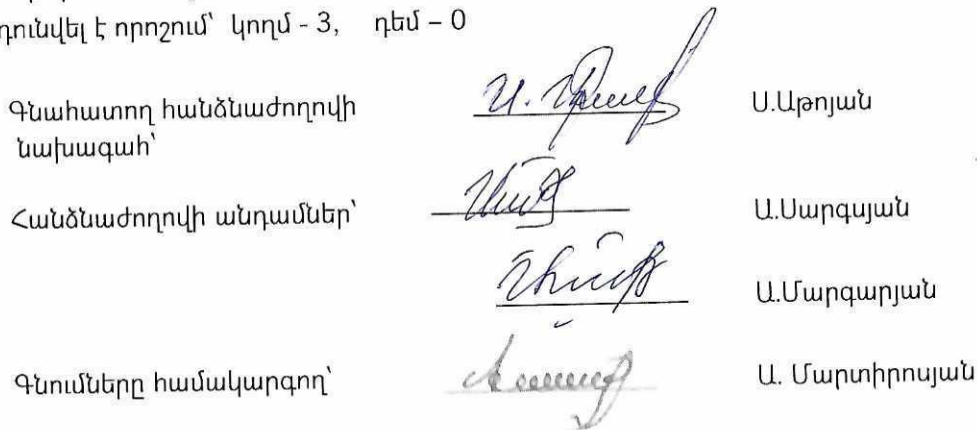 դունվել է որոշում՝ կողմ - 3, դեմ – 0
Գնահատող հանձնաժողովի Ս.Աթոյան
նախագահ՝
Հանձնաժողովի անդամներ՝ Ա.Սարգսյան
Ա.Մարգարյան
Գնումները համակարգող՝ Ա. Մարտիրոսյան